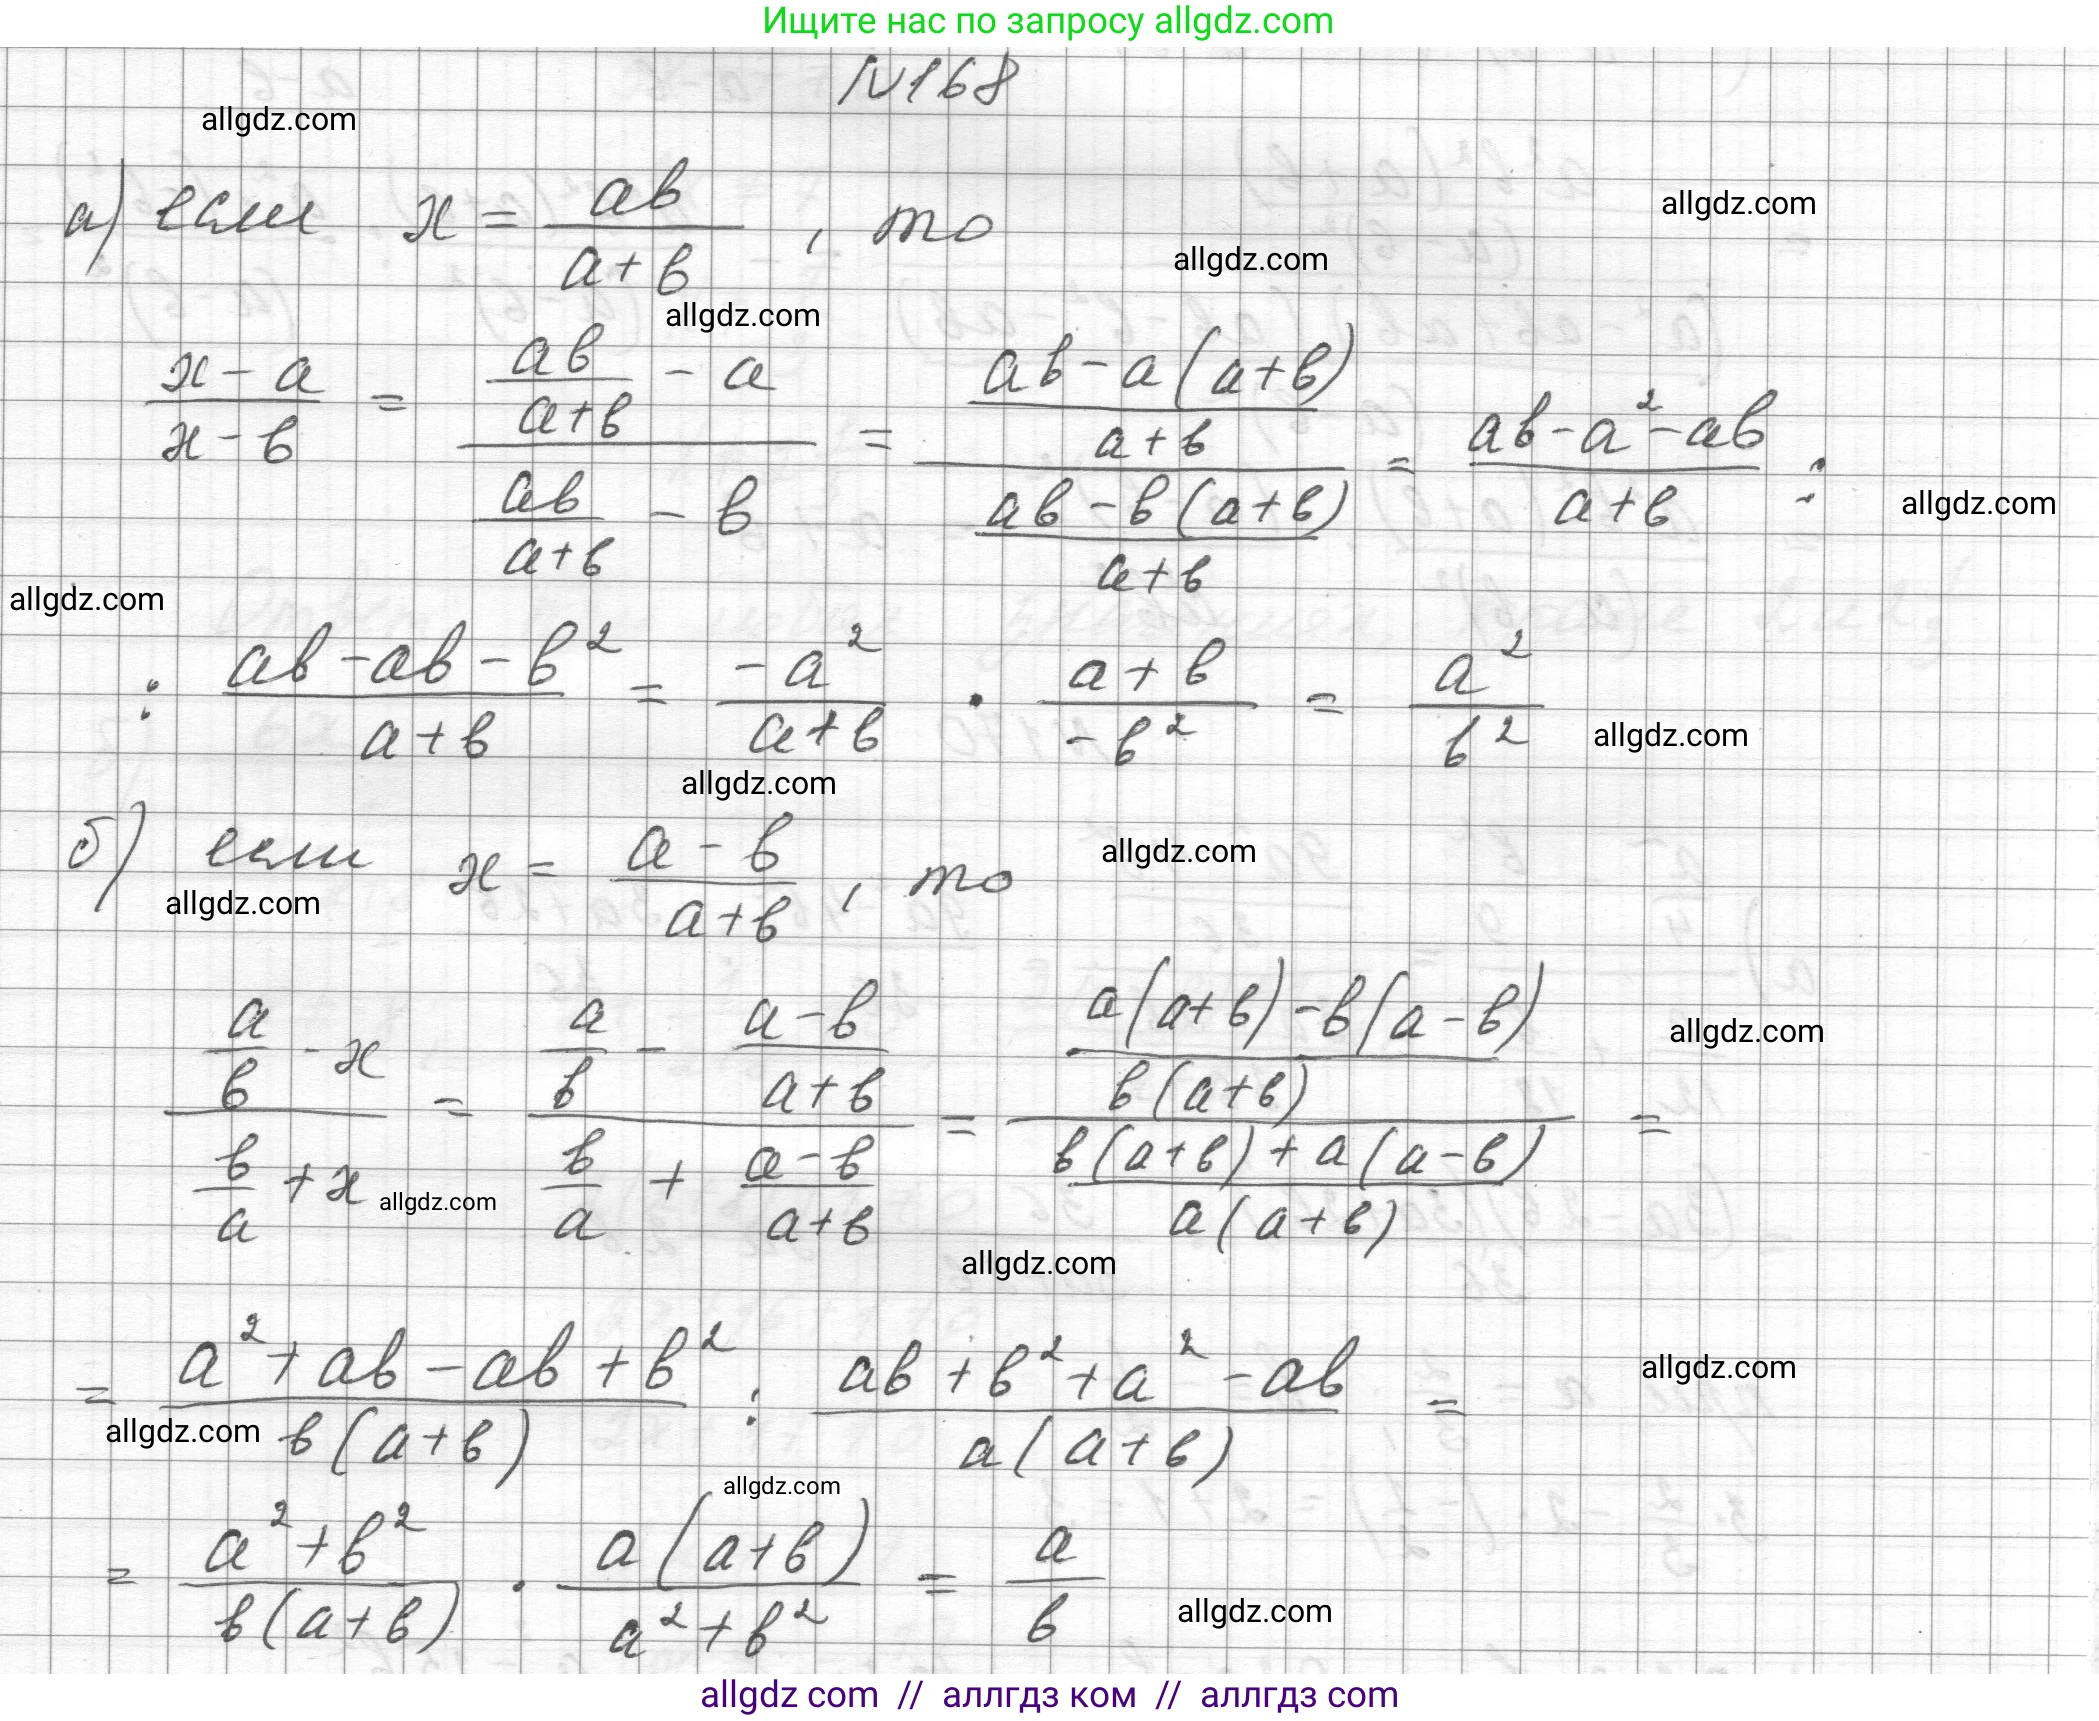 Ищите нас по запросу allgdz.com
N168
allgdz.com
а) если x = ab/(a+b), то
allgdz.com
allgdz.com
allgdz.com
(x-a)/(x-b) = (ab/(a+b) - a)/(ab/(a+b) - b) = ((ab-a(a+b))/(a+b))/((ab-b(a+b))/(a+b)) = (ab-a²-ab)/(a+b) :
allgdz.com
allgdz.com
: (ab-ab-b²)/(a+b) = (-a²)/(a+b) · (a+b)/(-b²) = a²/b²
allgdz.com
allgdz.com
б) если x = (a-b)/(a+b), то
allgdz.com
allgdz.com
(a/b - x)/(b/a + x) = (a/b - (a-b)/(a+b))/(b/a + (a-b)/(a+b)) = ((a(a+b)-b(a-b))/(b(a+b)))/((b(a+b)+a(a-b))/(a(a+b))) =
allgdz.com
allgdz.com
allgdz.com
= (a²+ab-ab+b²)/(b(a+b)) : (ab+b²+a²-ab)/(a(a+b)) =
allgdz.com
allgdz.com
allgdz.com
= (a²+b²)/(b(a+b)) · (a(a+b))/(a²+b²) = a/b
allgdz.com
allgdz com // аллгдз ком // аллгдз com